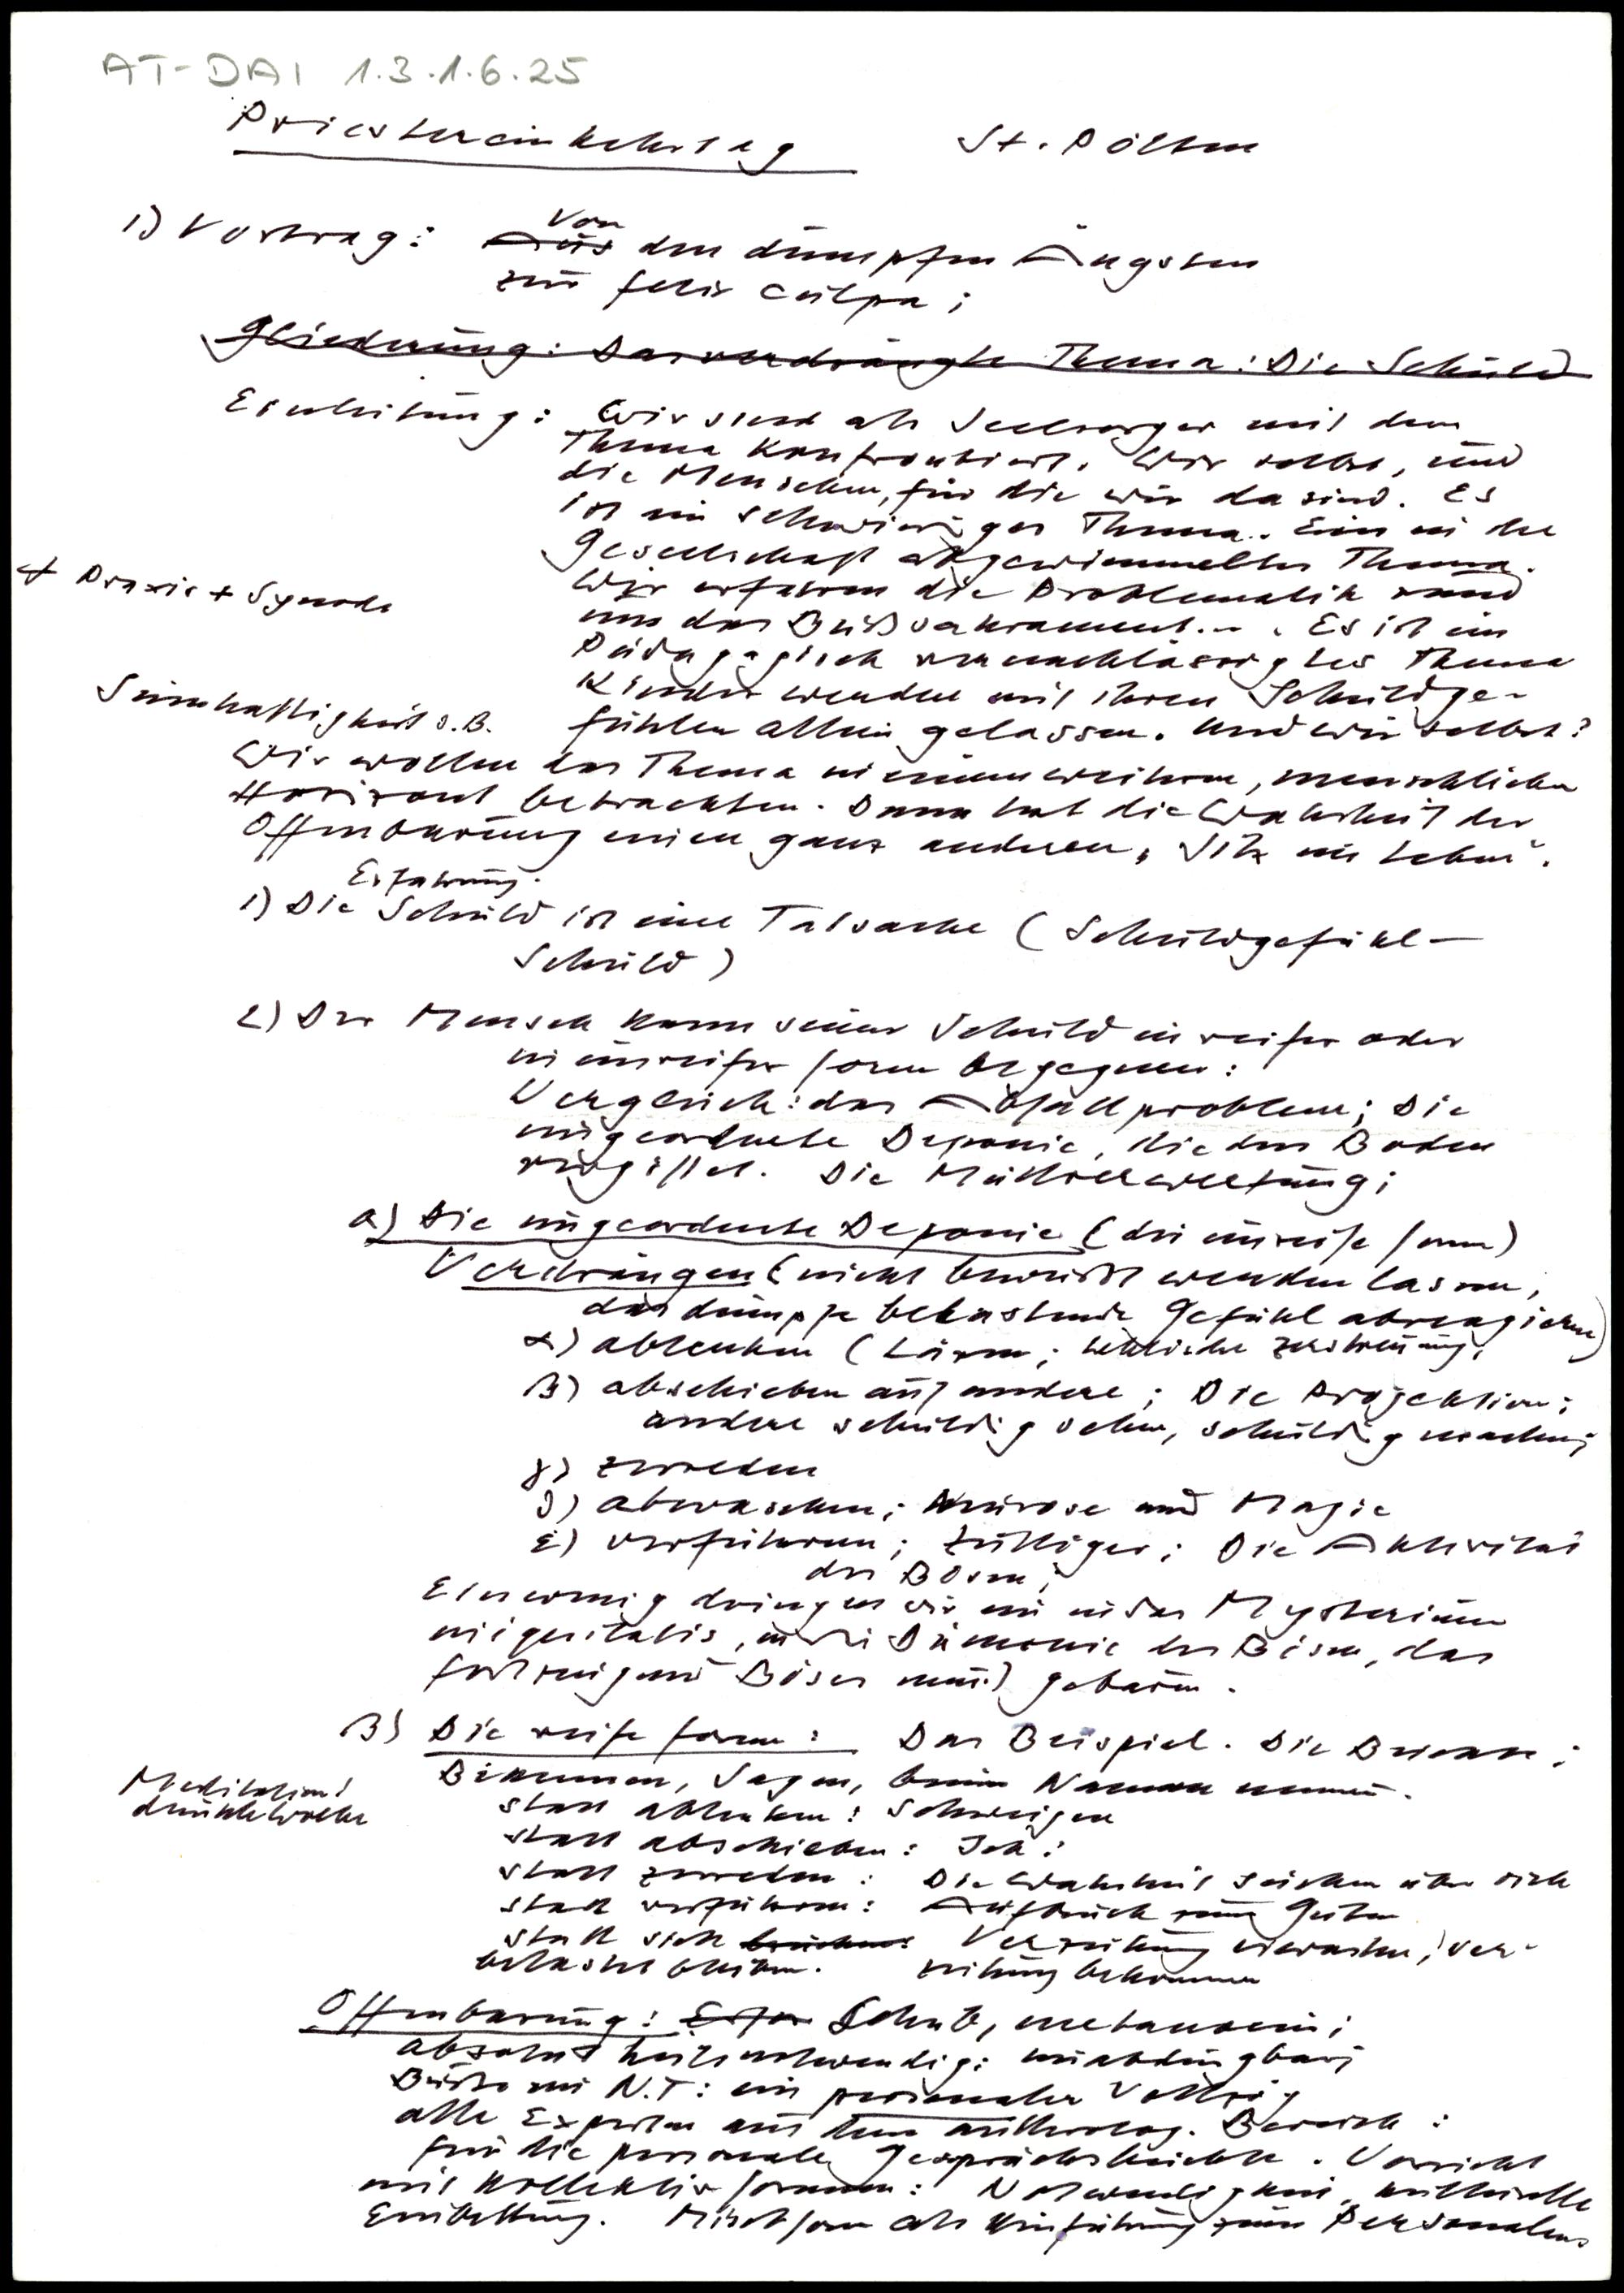 AT-DAI 1.3.1.6.25
Priestereinkehrtag St. Pölten
1) Vortrag: Aus Von den dumpfen Ängsten
zur felix culpa;
Gliederung: Das verdrängte Thema: Die Schuld
Einleitung: Wir sind als Seelsorger mit dem
Thema konfrontiert. Wir selbst, und
die Menschen, für die wir da sind. Es
ist ein schwieriges Thema. Ein in der
Gesellschaft abgewimmeltes Thema.
+ Praxis + Synode
Wir erfahren die Problematik rund
um das Bußsakrament... Es ist ein
Pädagogisch vernachlässigtes Thema
Kinder werden mit ihren Schuldge-
Sinnhaftigkeit d. B.
fühlen allein gelassen. Und wir selbst?
Wir wollen das Thema in einem weiteren, menschlichen
Horizont betrachten. Dann hat die Wahrheit der
Offenbarung einen ganz anderen „Sitz im Leben".
Erfahrung.
1) Die Schuld ist eine Tatsache (Schuldgefühl –
Schuld)
2) Der Mensch kann seiner Schuld in reifer oder
in unreifer Form begegnen:
Vergleich: das Abfallproblem; Die
ungeordnete Deponie, die den Boden
vergiftet. Die Müllverwertung;
a) Die ungeordnete Deponie (die unreife Form)
Verdrängen (nicht bewußt werden lassen,
das dumpfe belastende Gefühl abreagieren)
α) ablenken (Lärm; Zerstreuung,
β) abschieben auf andere; Die Projektion;
andere schuldig sehen, schuldig machen;
γ) zerreden
δ) abwaschen; Neurose und Magie
ε) verführen; Zulliger; Die Aktivität
des Bösen;
Ein wenig dringen wir ein in das Mysterium
iniquitatis, in die Dämonie des Bösen, das
fortzeugend Böses muß gebären.
B) Die reife Form: Das Beispiel. Die Beichte;
Bekennen, Sagen, beim Namen nennen.
Meditation!
dunkle Wolke
statt ablenken: Schweigen
statt abschieben: Ich!
statt zerreden: Die Wahrheit über sich
statt verführen: Aufbruch zum Guten
statt sich Verzeihung erwarten, ver-
belastet bleiben. zeihung bekommen
Offenbarung: Schub, metanoein;
absolut heilsnotwendig: unabdingbar;
Buße im N.T: ein personaler Vollzug
alle Experten aus dem anthropolog. Bereich:
für die personale Gesprächsbeichte. Vorsicht
mit Kollektivformen: Notwendigkeit, kulturelle
Einbettung. Mischform als Hinführung zum Personalen